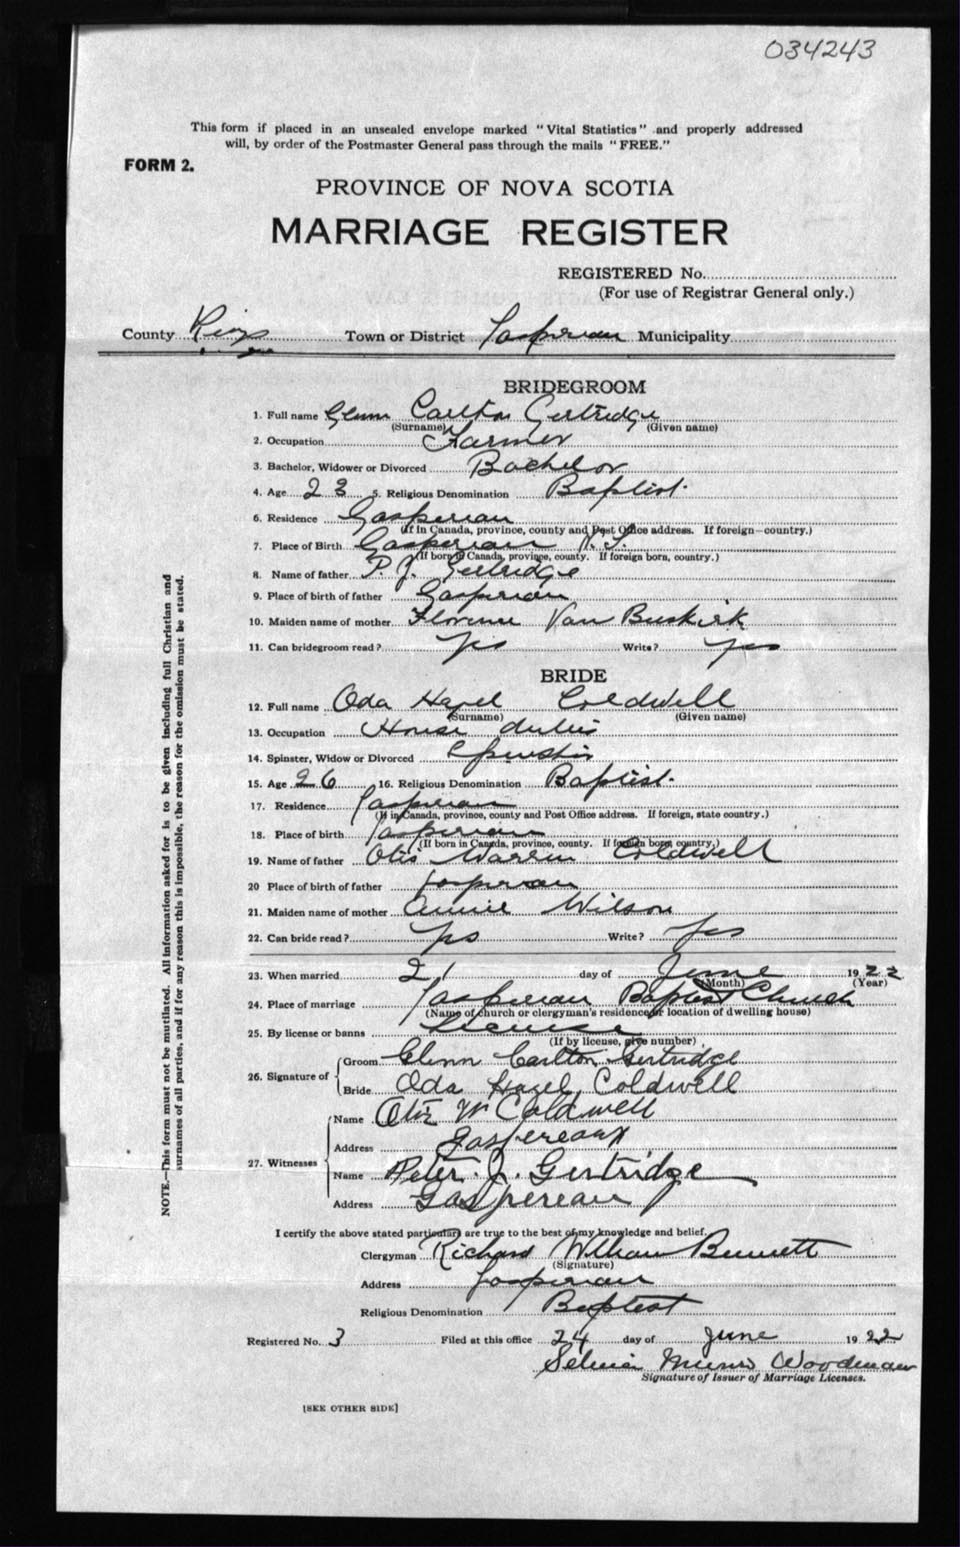 034243
This form if placed in an unsealed envelope marked "Vital Statistics" and properly addressed
will, by order of the Postmaster General pass through the mails "FREE."
FORM 2.
PROVINCE OF NOVA SCOTIA
MARRIAGE REGISTER
REGISTERED No.
(For use of Registrar General only.)
County Kings Town or District Gaspereau Municipality
BRIDEGROOM
1. Full name Glenn Carlton Gertridge
(Surname) (Given name)
2. Occupation Farmer
3. Bachelor, Widower or Divorced Bachelor
4. Age 23 5. Religious Denomination Baptist
6. Residence Gaspereau
(If in Canada, province, county and Post Office address. If foreign—country.)
7. Place of Birth Gaspereau N.S.
(If born in Canada, province, county. If foreign born, country.)
8. Name of father P. J. Gertridge
9. Place of birth of father Gaspereau
10. Maiden name of mother Florence Van Buskirk
11. Can bridegroom read? Yes Write? Yes
BRIDE
12. Full name Oda Hazel Coldwell
(Surname) (Given name)
13. Occupation House duties
14. Spinster, Widow or Divorced Spinster
15. Age 26 16. Religious Denomination Baptist
17. Residence Gaspereau
(If in Canada, province, county and Post Office address. If foreign, state country.)
18. Place of birth Gaspereau
(If born in Canada, province, county. If foreign born, country.)
19. Name of father Otis Warren Coldwell
20 Place of birth of father Gaspereau
21. Maiden name of mother Annie Wilson
22. Can bride read? Yes Write? Yes
23. When married 21 day of June 1922
(Month) (Year)
24. Place of marriage Gaspereau Baptist Church
(Name of church or clergyman's residence or location of dwelling house)
25. By license or banns License
(If by license, give number)
26. Signature of Groom Glenn Carlton Gertridge
Bride Oda Hazel Coldwell
27. Witnesses Name Otis W Coldwell
Address Gaspereaux
Name Peter J. Gertridge
Address Gaspereau
I certify the above stated particulars are true to the best of my knowledge and belief.
Clergyman Richard William Bennett
(Signature)
Address Gaspereau
Religious Denomination Baptist
Registered No. 3 Filed at this office 24 day of June 1922
Woodman
Signature of Issuer of Marriage Licenses.
[SEE OTHER SIDE]
NOTE.—This form must not be mutilated. All information asked for is to be given including full Christian and
surnames of all parties, and if for any reason this is impossible, the reason for the omission must be stated.